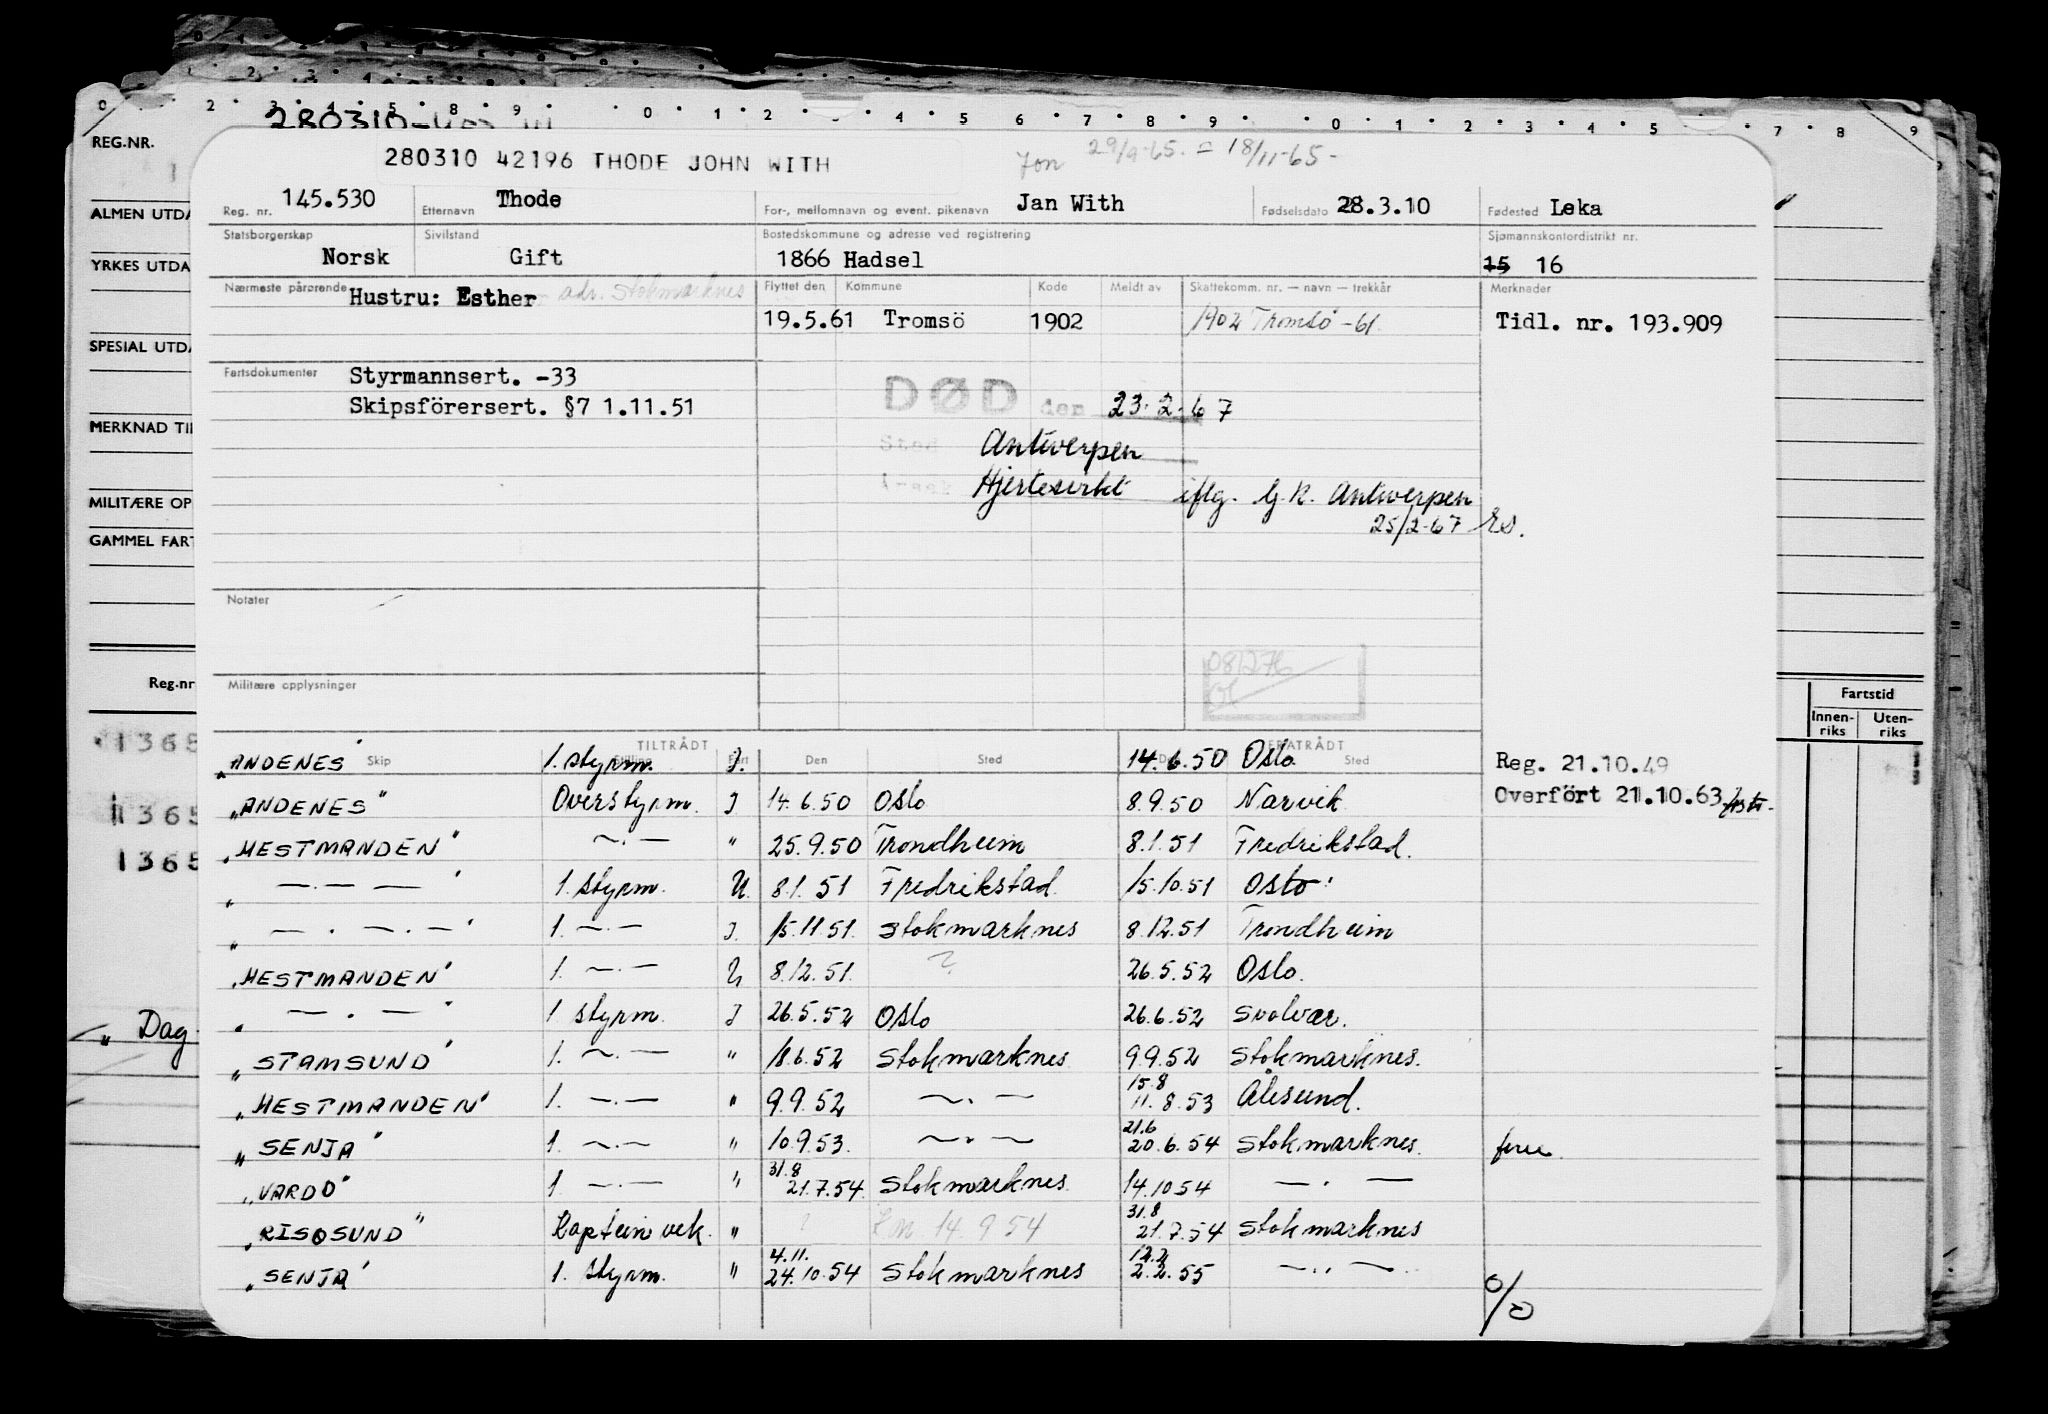 280310
280310 42196 THODE JOHN WITH
Jon 29/9-65. = 18/11-65-
REG.NR.
ALMEN UTDA
YRKES UTDA
SPESIAL UTDA
MERKNAD TIL
MILITÆRE OP
GAMMEL FART
Reg.nr
1365
1365
1365
„ Dag
Reg. nr. 145.530 Etternavn Thode For-, mellomnavn og event. pikenavn Jan With Fødselsdato 28.3.10 Fødested Leka
Statsborgerskap Sivilstand Bostedskommune og adresse ved registrering Sjømannskontordistrikt nr.
Norsk Gift 1866 Hadsel 15 16
Nærmeste pårørende Hustru: Esther adr. Stokmarknes Flyttet den Kommune Kode Meldt av Skattekomm. nr. — navn — trekkår Merknader
19.5.61 Tromsö 1902 1902 Tromsö -61. Tidl. nr. 193.909
Fartsdokumenter Styrmannsert. -33
Skipsförersert. §7 1.11.51
DØD den 23.2.67
Sted Antwerpen
Årsak Hjertesvikt iflg. G.K. Antwerpen
25/2-67 Es.
Notater
081276
Ol
Militære opplysninger
Fartstid
Innen-riks Uten-riks
TILTRÅDT FRATRÅDT
Skip Stilling Fart Den Sted Den Sted
„ANDENES" 1. styrm. I. 14.6.50 Oslo Reg. 21.10.49
„ANDENES" Overstyrm. I 14.6.50 Oslo 8.9.50 Narvik Overfört 21.10.63
„HESTMANDEN" —.— " 25.9.50 Trondheim 8.1.51 Fredrikstad.
„ —.— — " 1. styrm. U. 8.1.51 Fredrikstad 15.10.51 Oslo.
„ — . —.— " 1. —.— I. 15.11.51. Stokmarknes 8.12.51 Trondheim
„HESTMANDEN" 1. —.— U 8.12.51. ? 26.5.52 Oslo.
„ — . — " 1 styrm. I 26.5.52 Oslo 26.6.52 Svolvær.
„STAMSUND" 1. —.— " 18.6.52 Stokmarknes 9.9.52 Stokmarknes.
„HESTMANDEN" 1. —.— " 9.9.52 —.— 15.8 11.8.53 Ålesund.
„SENJA" 1. —.— " 10.9.53. —.— 21.6 20.6.54 Stokmarknes.
„VARDØ" 1. —.— " 31.8 21.7.54 Stokmarknes 14.10.54 — . —
„RISØSUND" Kaptein vik. " ? 14.9.54 31.8 21.7.54 Stokmarknes
„SENJA" 1. styrm. " 4.11. 24.10.54 Stokmarknes 12.2 2.2.55 —..—.